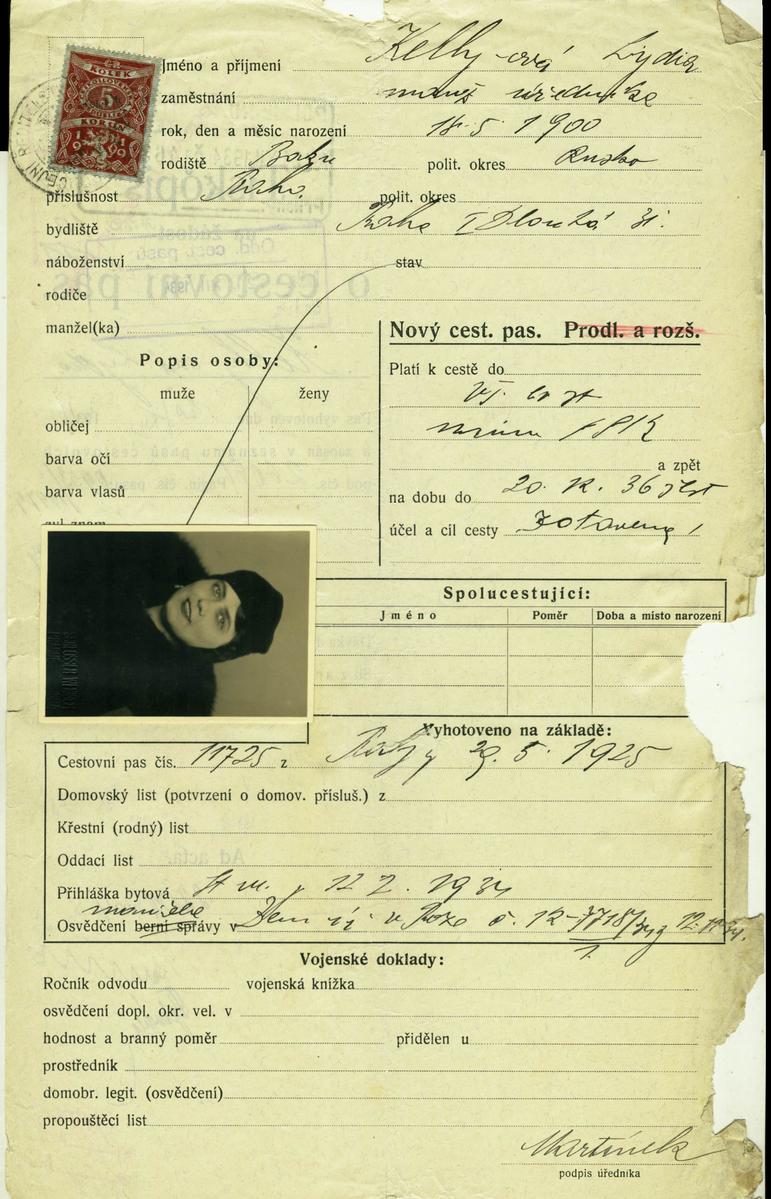 KOLEK
5
KORUN
1919
Jméno a příjmení Kelly-ová Lydia
zaměstnání manž. úředníka
rok, den a měsíc narození 18.5.1900
rodiště Baku polit. okres Rusko
příslušnost Praha. polit. okres
bydliště Praha I Dlouhá 31.
náboženství stav
rodiče
manžel(ka)
Popis osoby:
muže ženy
obličej
barva očí
barva vlasů
zvl. znam.
Nový cest. pas. Prodl. a rozš.
Platí k cestě do
mimo SSSR
a zpět
na dobu do 20. 12. 36
účel a cíl cesty Zotavení
Spolucestující:
Jméno Poměr Doba a místo narození
Vyhotoveno na základě:
Cestovní pas čís. 11725 z Prahy 29. 5. 1925
Domovský list (potvrzení o domov. přísluš.) z
Křestní (rodný) list
Oddací list
Přihláška bytová 12 2. 1934
manžela
Osvědčení berní správy v v Praze č. 12-
Vojenské doklady:
Ročník odvodu vojenská knížka
osvědčení dopl. okr. vel. v
hodnost a branný poměr přidělen u
prostředník
domobr. legit. (osvědčení)
propouštěcí list
Martínek
podpis úředníka